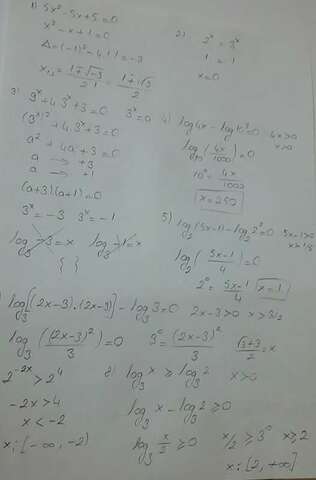 1) 5x²-5x+5=0
x²-x+1=0
Δ=(-1)²-4·1·1=-3
x₁,₂=1±√-3/2·1=1±i√3/2
2) 2ˣ=3ˣ
1=1
x=0
3) 9ˣ+4·3ˣ+3=0 3ˣ=a
(3ˣ)²+4·3ˣ+3=0
a²+4a+3=0
a → +3
a → +1
(a+3)(a+1)=0
3ˣ=-3 3ˣ=-1
log₃-3=x log₃-1=x
{ }
4) log4x-log10³=0 4x>0
x>0
log₁₀(4x/1000)=0
10⁰=4x/1000
x=250
5) log₂(5x-1)-log₂2²=0 5x-1>0
x>1/5
log₂(5x-1/4)=0
2⁰=5x-1/4 x=1
log₃[(2x-3)·(2x-3)]-log₃3=0 2x-3>0 x>3/2
log₃((2x-3)²/3)=0 3⁰=(2x-3)²/3 √3+3/2=x
2⁻²ˣ>2⁴
-2x>4
x<-2
x:[-∞,-2)
8) log₃x≥log₃2 x>0
log₃x-log₃2≥0
log₃x/2≥0 x/2≥3⁰ x≥2
x:[2,+∞]